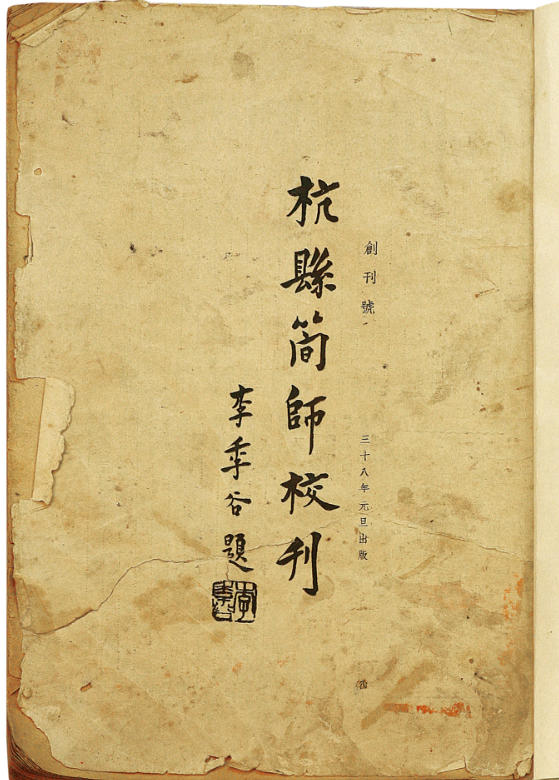 創刊號
三十八年元旦出版
杭縣简師校刊
李季谷題